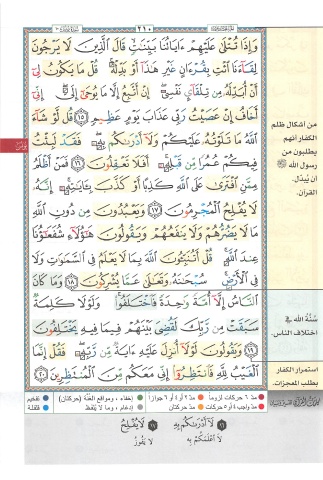 ٢١٠
وَإِذَا تُتْلَىٰ عَلَيْهِمْ ءَايَاتُنَا بَيِّنَٰتٍ قَالَ الَّذِينَ لَا يَرْجُونَ
لِقَآءَنَا ائْتِ بِقُرْءَانٍ غَيْرِ هَٰذَآ أَوْ بَدِّلْهُ قُلْ مَا يَكُونُ لِىٓ
أَنْ أُبَدِّلَهُۥ مِن تِلْقَآئِ نَفْسِىٓ إِنْ أَتَّبِعُ إِلَّا مَا يُوحَىٰٓ إِلَىَّ إِنِّىٓ
أَخَافُ إِنْ عَصَيْتُ رَبِّى عَذَابَ يَوْمٍ عَظِيمٍ ١٥ قُل لَّوْ شَآءَ
اللَّهُ مَا تَلَوْتُهُۥ عَلَيْكُمْ وَلَآ أَدْرَىٰكُم بِهِۦ فَقَدْ لَبِثْتُ
فِيكُمْ عُمُرًا مِّن قَبْلِهِۦٓ أَفَلَا تَعْقِلُونَ ١٦ فَمَنْ أَظْلَمُ
مِمَّنِ افْتَرَىٰ عَلَى اللَّهِ كَذِبًا أَوْ كَذَّبَ بِـَٔايَٰتِهِۦٓ إِنَّهُۥ
لَا يُفْلِحُ الْمُجْرِمُونَ ١٧ وَيَعْبُدُونَ مِن دُونِ اللَّهِ
مَا لَا يَضُرُّهُمْ وَلَا يَنفَعُهُمْ وَيَقُولُونَ هَٰٓؤُلَآءِ شُفَعَٰٓؤُنَا
عِندَ اللَّهِ قُلْ أَتُنَبِّـُٔونَ اللَّهَ بِمَا لَا يَعْلَمُ فِى السَّمَٰوَٰتِ وَلَا
فِى الْأَرْضِ سُبْحَٰنَهُۥ وَتَعَٰلَىٰ عَمَّا يُشْرِكُونَ ١٨ وَمَا كَانَ
النَّاسُ إِلَّآ أُمَّةً وَٰحِدَةً فَاخْتَلَفُوا۟ وَلَوْلَا كَلِمَةٌ
سَبَقَتْ مِن رَّبِّكَ لَقُضِىَ بَيْنَهُمْ فِيمَا فِيهِ يَخْتَلِفُونَ
١٩ وَيَقُولُونَ لَوْلَآ أُنزِلَ عَلَيْهِ ءَايَةٌ مِّن رَّبِّهِۦ فَقُلْ إِنَّمَا
الْغَيْبُ لِلَّهِ فَانتَظِرُوٓا۟ إِنِّى مَعَكُم مِّنَ الْمُنتَظِرِينَ ٢٠
من أشكال ظلم
الكفار أنهم
يطلبون من
رسول الله ﷺ
أن يُبدل
القرآن.
سُنَّةُ الله في
اختلاف الناس.
استمرار الكفار
بطلب المعجزات.
مدّ ٦ حركات لزوماً
مدّ ٢ أو ٤ أو ٦ جوازاً
إخفاء، ومواقع الغُنَّة (حركتان)
تفخيم
مدّ واجب ٤ أو ٥ حركات
مدّ حركتان
إدغام، وما لا يُلفظ
قلقلة
١٦ لَآ أَدْرَىٰكُم بِهِ
لا أعلمكم به
١٧ لَا يُفْلِحُ
لا يفوز